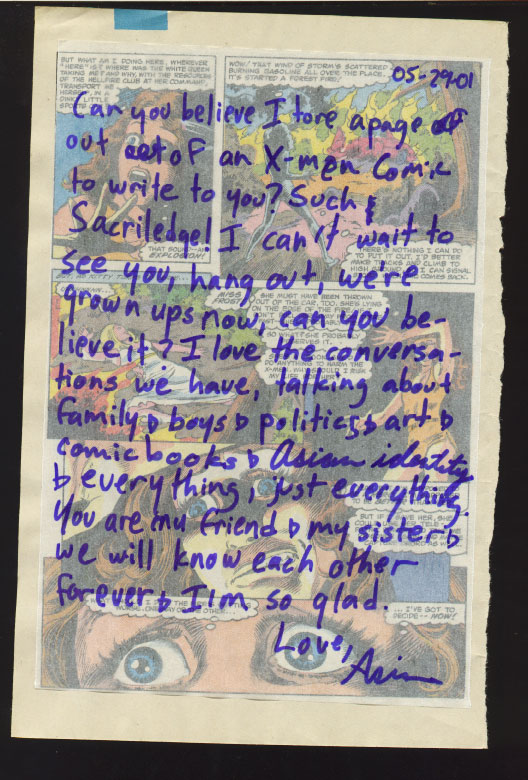 BUT WHAT AM I DOING HERE, WHEREVER
"HERE" IS? WHERE WAS THE WHITE QUEEN
TAKING ME? AND WHY, WITH THE RESOURCES
OF THE HELLFIRE CLUB AT HER COMMAND,
TRANSPORT ME
HERSELF, IN A
LITTLE
SPORTS
WOW! THAT WIND OF STORM'S SCATTERED
BURNING GASOLINE ALL OVER THE PLACE.
IT'S STARTED A FOREST FIRE!
05-29-01
Can you believe I tore a page
out of an X-men Comic
to write to you? Such
Sacriledge! I can't wait to
see you, hang out, we're
grown ups now, can you be-
lieve it? I love the conversa-
tions we have, talking about
family & boys & politics & art &
comic books & Asian identity
& everything, just everything.
You are my friend & my sister &
we will know each other
forever & I'm so glad.
Love,
THAT SOUND--AN
EXPLOSION!
THERE'S NOTHING I CAN DO
TO PUT IT OUT. I'D BETTER
MAKE TRACKS AND CLIMB TO
HIGH GROUND
I CAN SIGNAL
COMES BACK.
MISS
FROST!
SHE MUST HAVE BEEN THROWN
OUT OF THE CAR, TOO. SHE'S LYING
... I'VE GOT TO
DECIDE -- NOW!